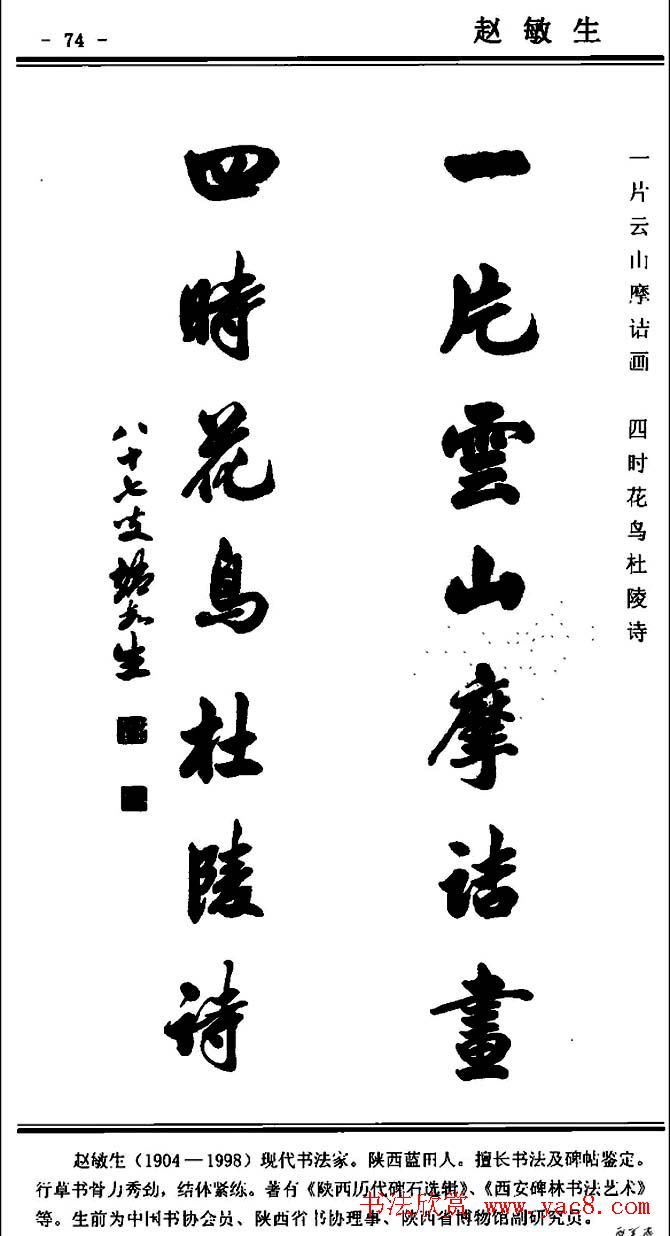 - 74 -
赵敏生
一片云山摩诘画 四时花鸟杜陵诗
一片雲山摩诘畫
四時花鳥杜陵诗
八十七叟趙敏生
赵敏生（1904—1998）现代书法家。陕西蓝田人。擅长书法及碑帖鉴定。
行草书骨力秀劲，结体紧练。著有《陕西历代碑石选辑》、《西安碑林书法艺术》
等。生前为中国书协会员、陕西省书协理事、陕西省博物馆副研究员。
书法欣赏 www.yac8.com